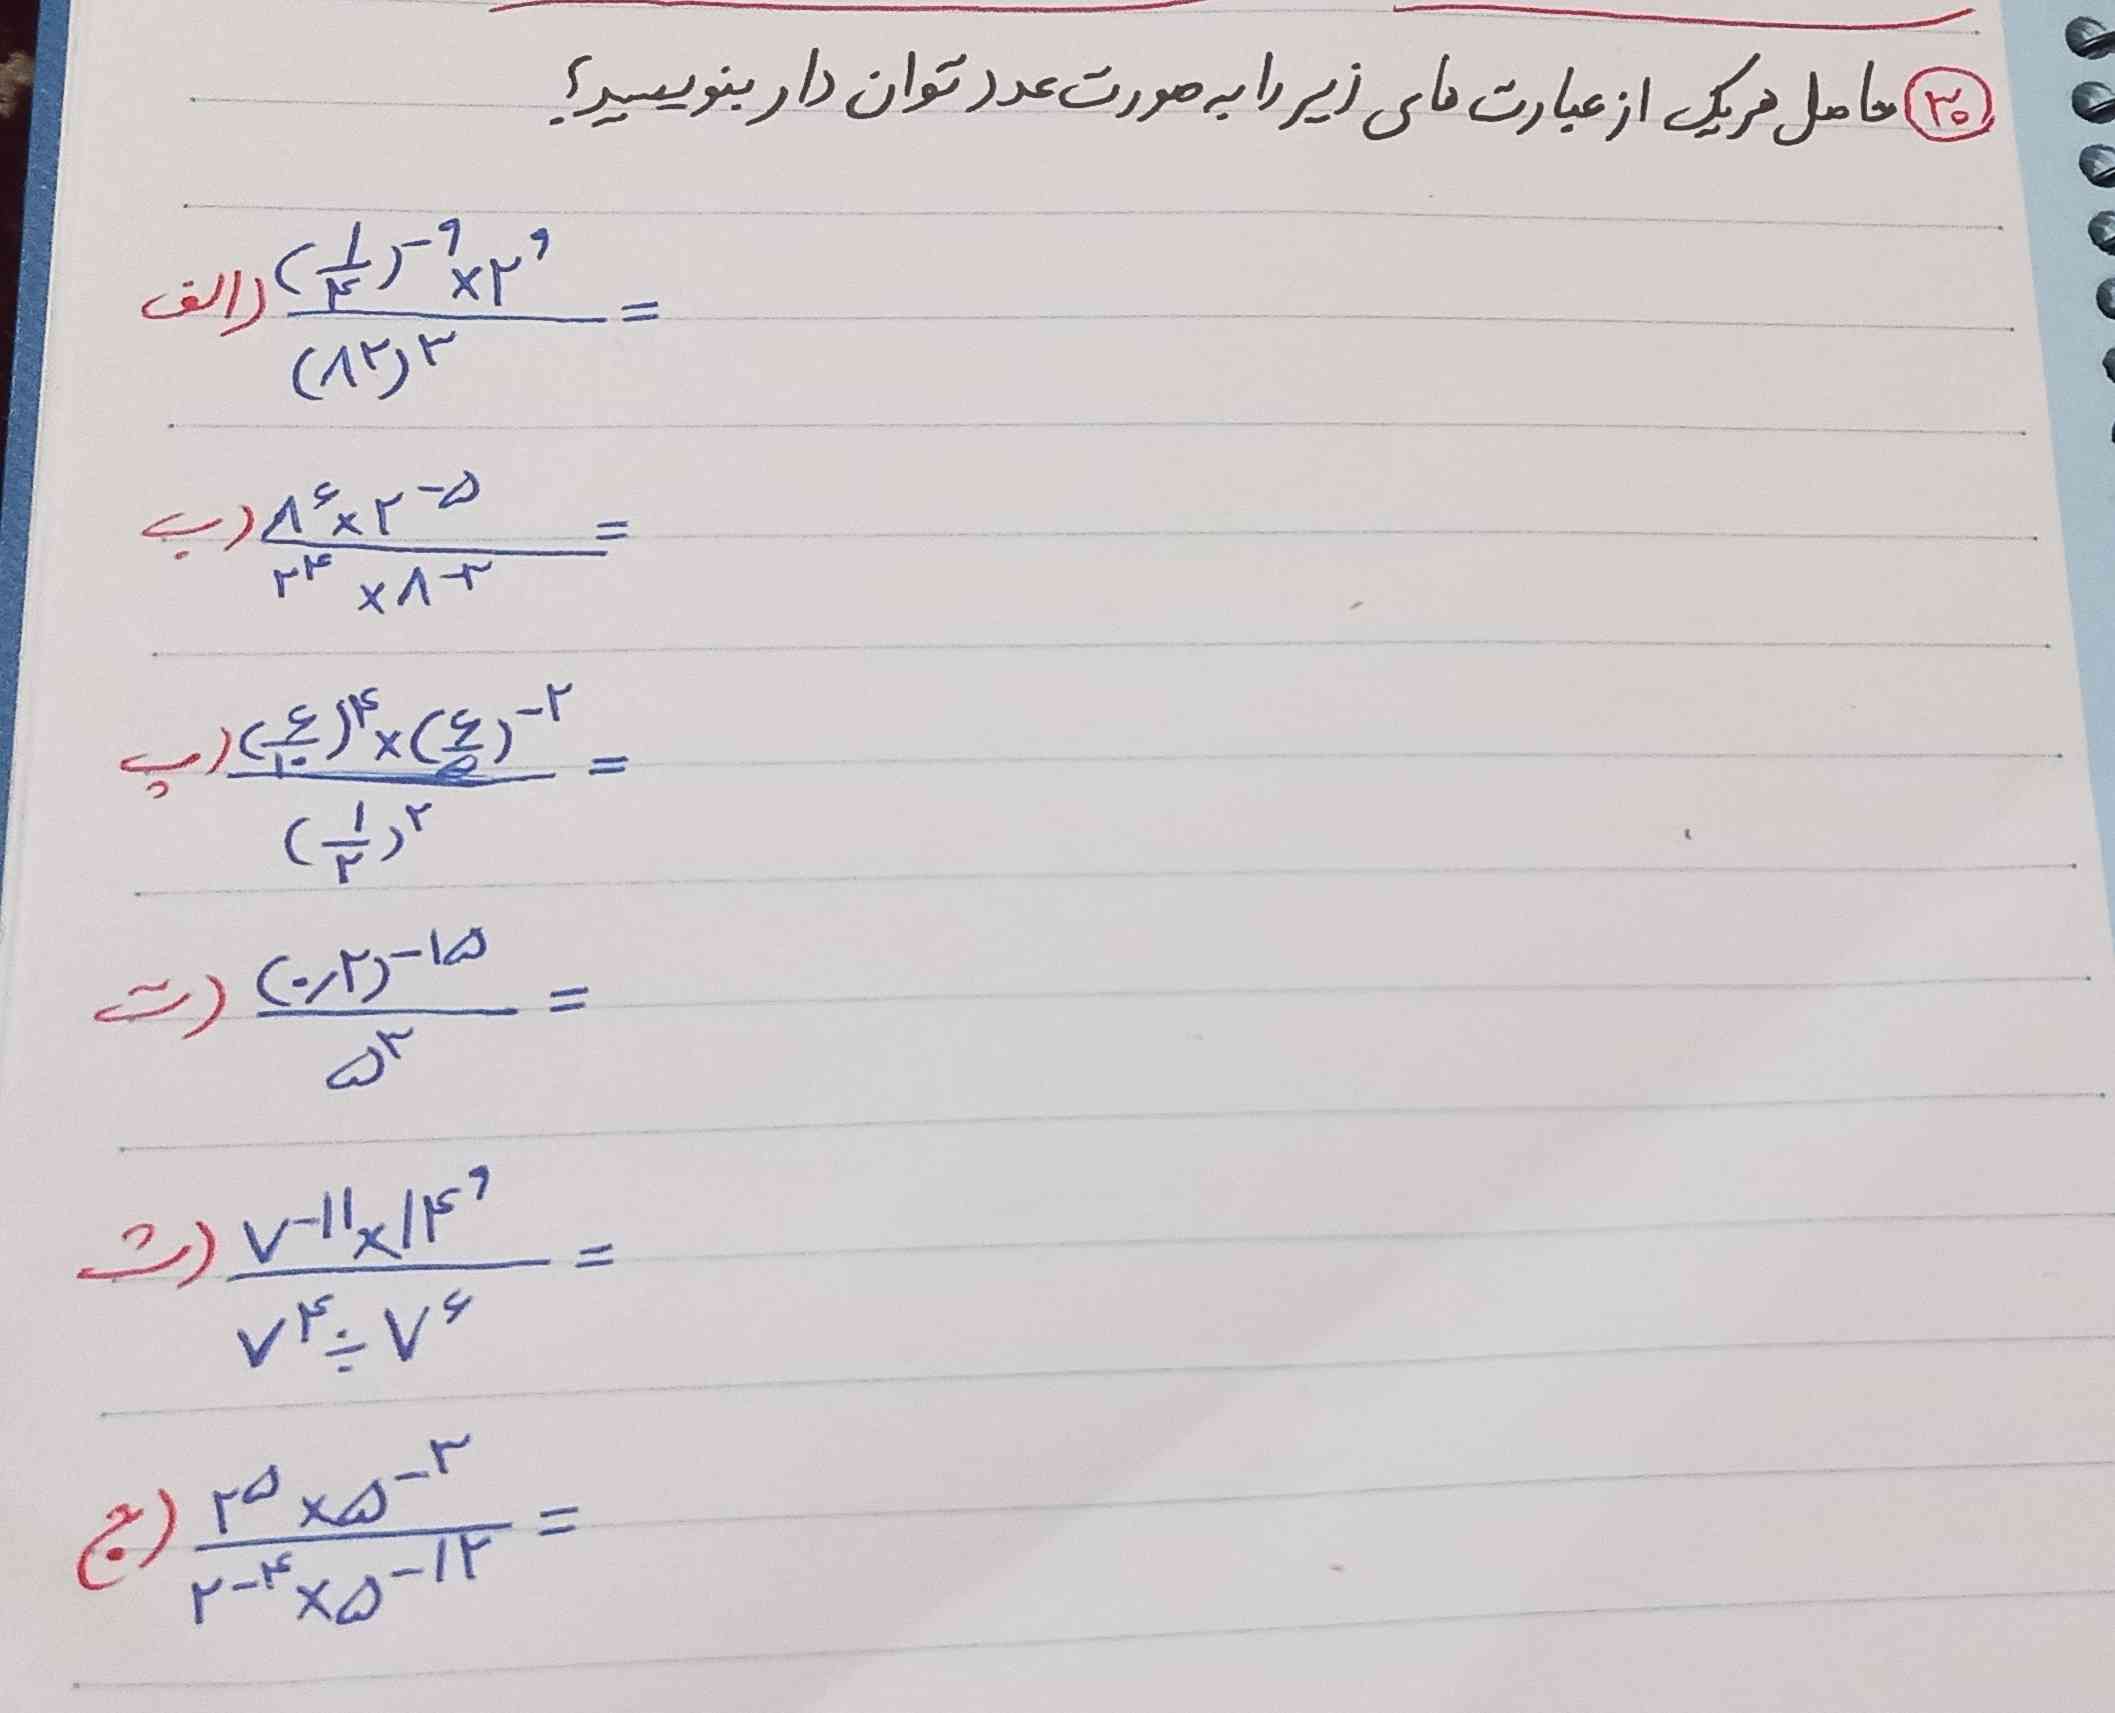 ۳۰) حاصل هر یک از عبارت های زیر را به صورت عدد توان دار بنویسید؟
الف) ((۱/۴)^-۹ × ۲^۹) / (۸^۲)^۳ =
ب) (۸^۶ × ۲^-۵) / (۲^۴ × ۸^-۳) =
پ) ((۶/۱۰)^۴ × (۶/۵)^-۲) / (۱/۲)^۲ =
ت) (۰٫۲)^-۱۵ / ۵^۳ =
ث) (۷^-۱۱ × ۱۴^۹) / (۷^۴ ÷ ۷^۶) =
ج) (۲^۵ × ۵^-۳) / (۲^-۴ × ۵^-۱۲) =